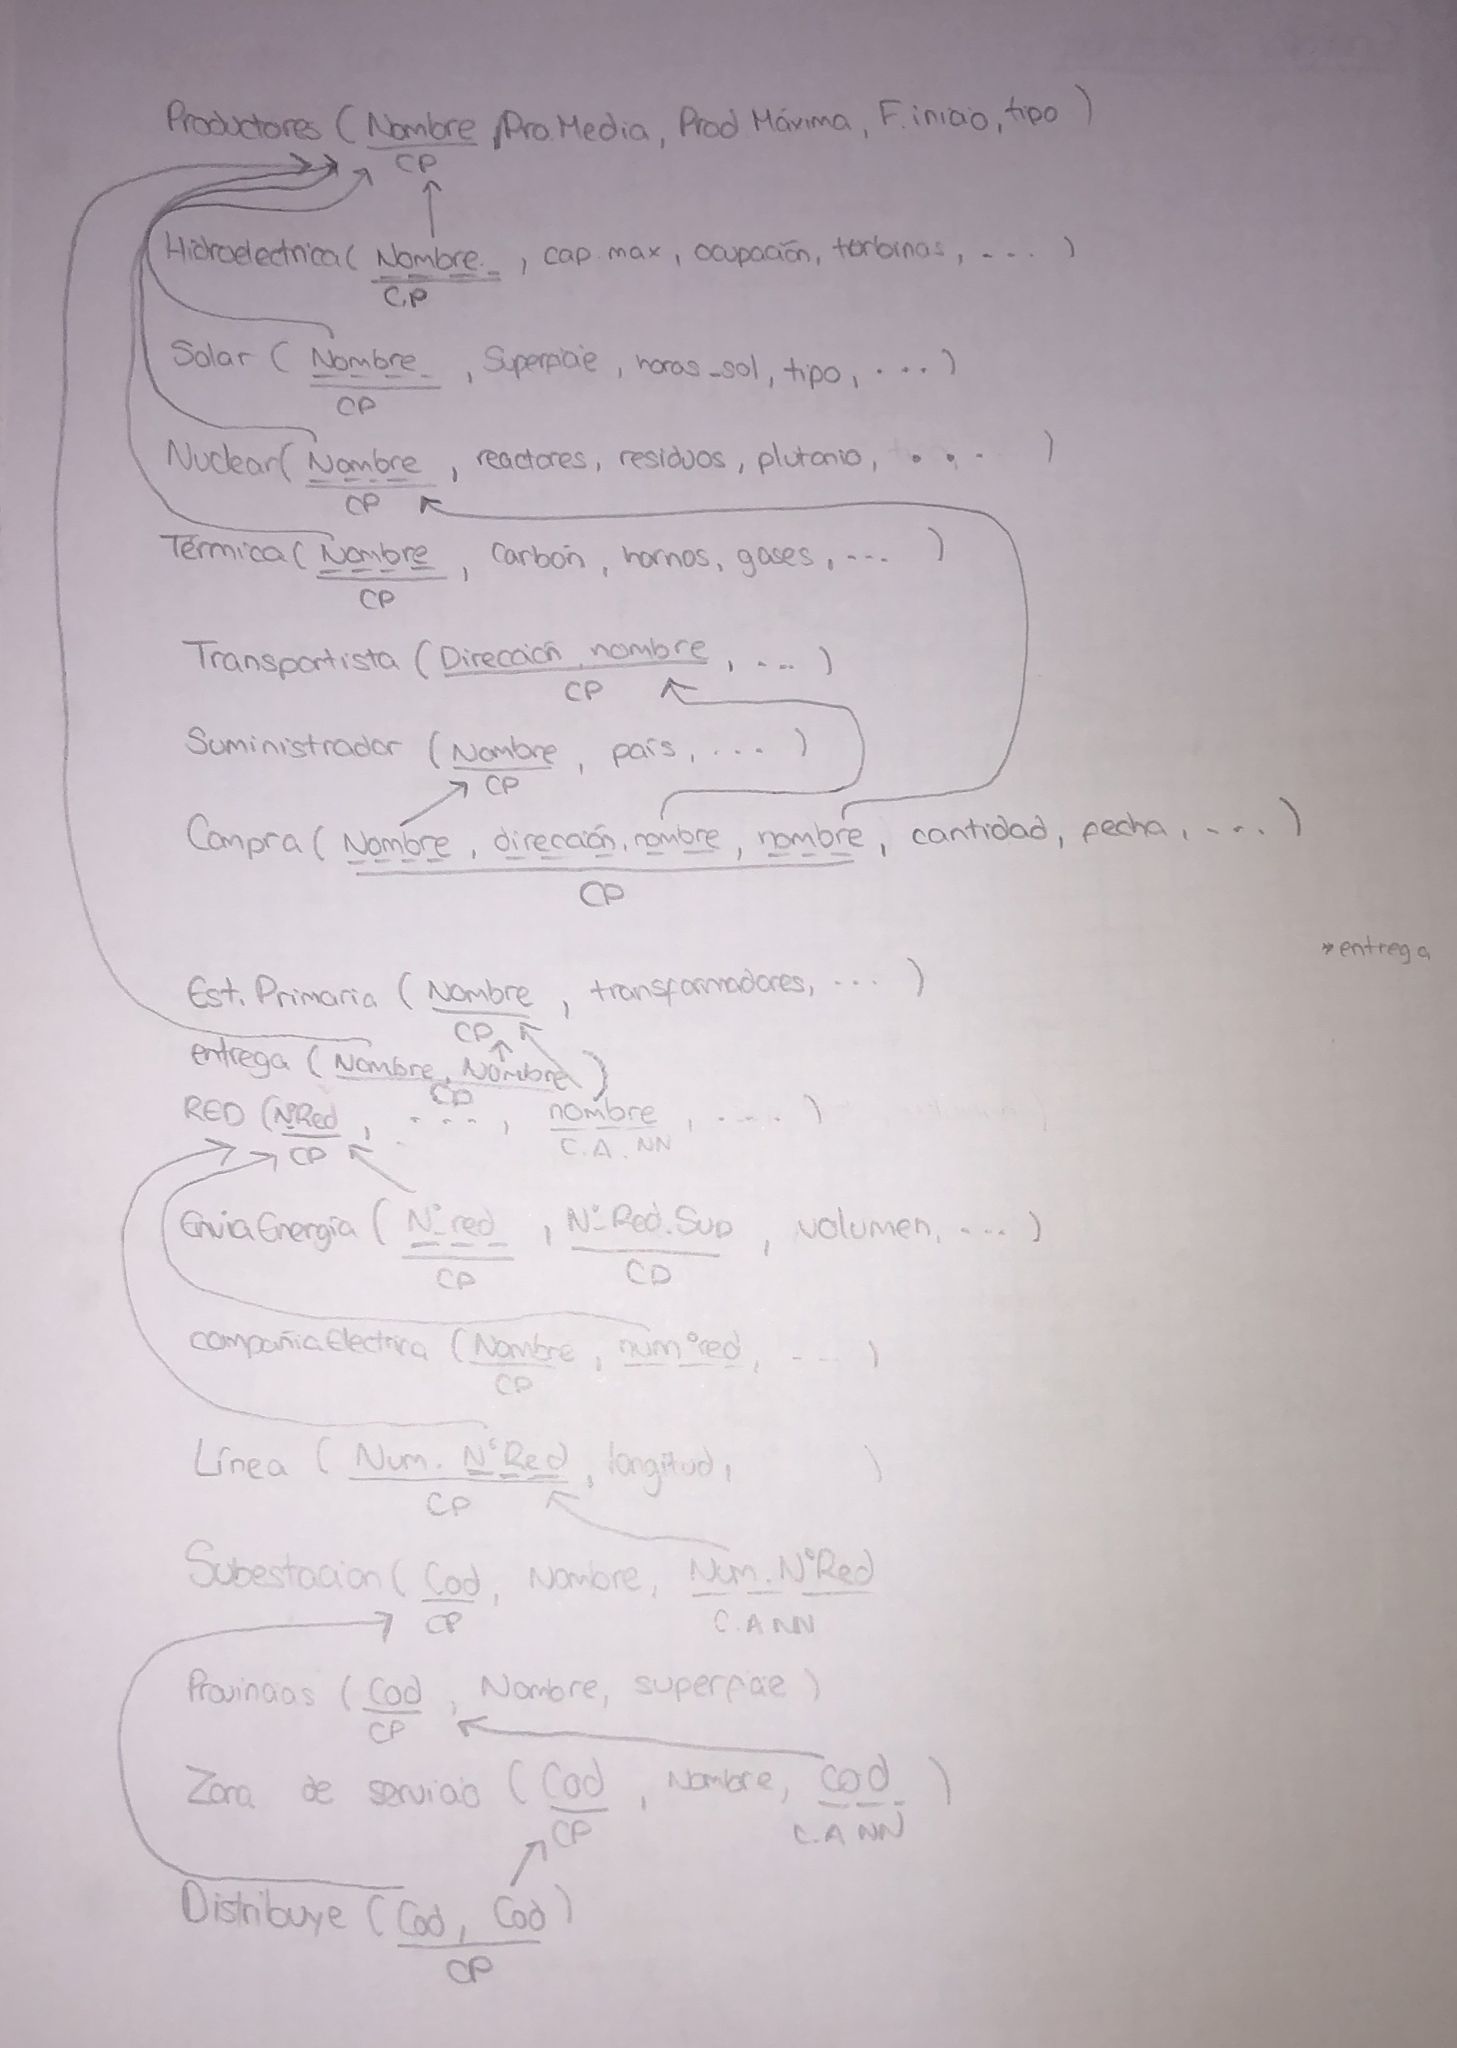 Productores ( Nombre, Pro.Media, Prod Máxima, F.inicio, tipo )
CP
Hidroelectrica( Nombre, cap.max, ocupación, turbinas, .... )
C.P
Solar ( Nombre, Superficie, horas_sol, tipo, .... )
CP
Nuclear( Nombre, reactores, residuos, plutonio, ... )
CP
Térmica( Nombre, Carbón, hornos, gases, ... )
CP
Transportista ( Dirección, nombre, ... )
CP
Suministrador ( Nombre, país, .... )
CP
Compra ( Nombre, dirección, nombre, nombre, cantidad, fecha, .... )
CP
* entrega
Est. Primaria ( Nombre, transformadores, .... )
CP
entrega ( Nombre, Nombre )
CP
RED (NºRed, ...., nombre, .... )
CP C.A. NN
EnviaEnergía ( Nº red, Nº Red.Sup, volumen, .... )
CP CP
compañiaElectrica ( Nombre, numºred, ... )
CP
Línea ( Num. NºRed, longitud, )
CP
Subestacion( Cod, Nombre, Num. NºRed
CP C.A NN
Provincias ( Cod, Nombre, superficie )
CP
Zona de servicio ( Cod, Nombre, cod )
CP C.A NN
Distribuye ( Cod, Cod )
CP